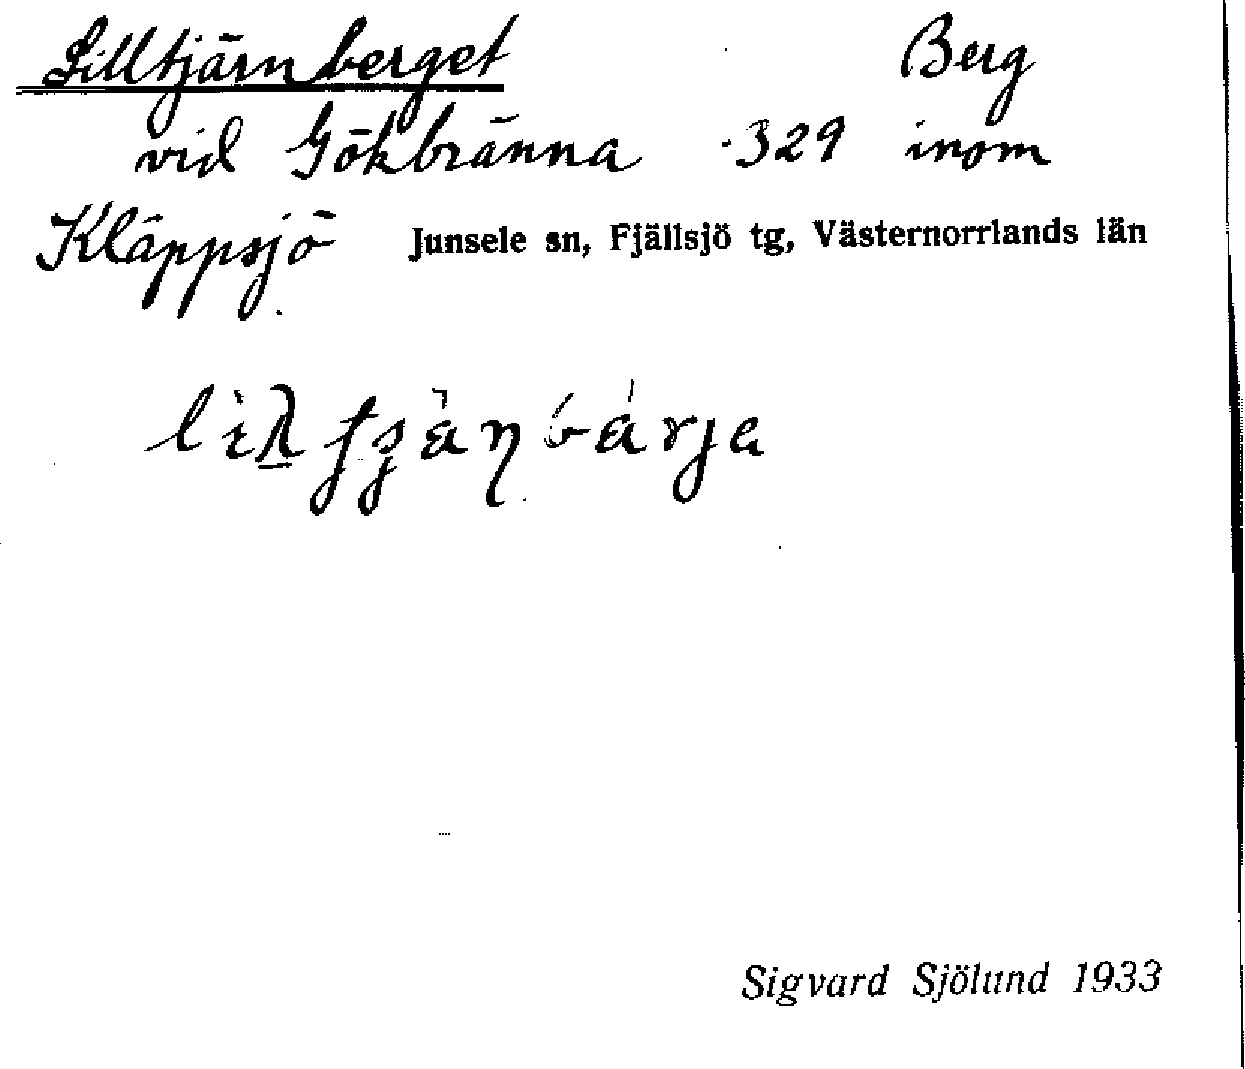 Lilltjärnberget Berg
vid Gökbränna ·329 inom
Kläppsjö Junsele sn, Fjällsjö tg, Västernorrlands län
Sigvard Sjölund 1933